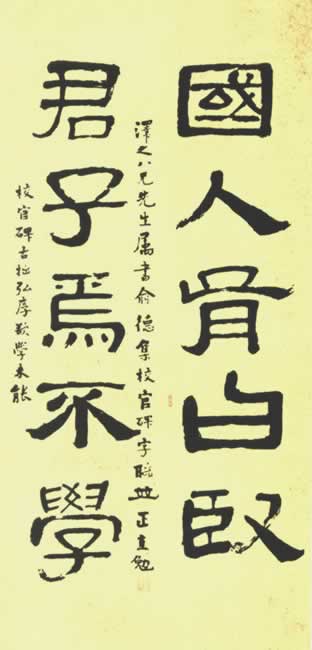 國人胥曰臤
澤之八兄先生屬書俞德集校官碑字聯並正直勉
君子焉不學
校官碑古拙弘厚歎學未能